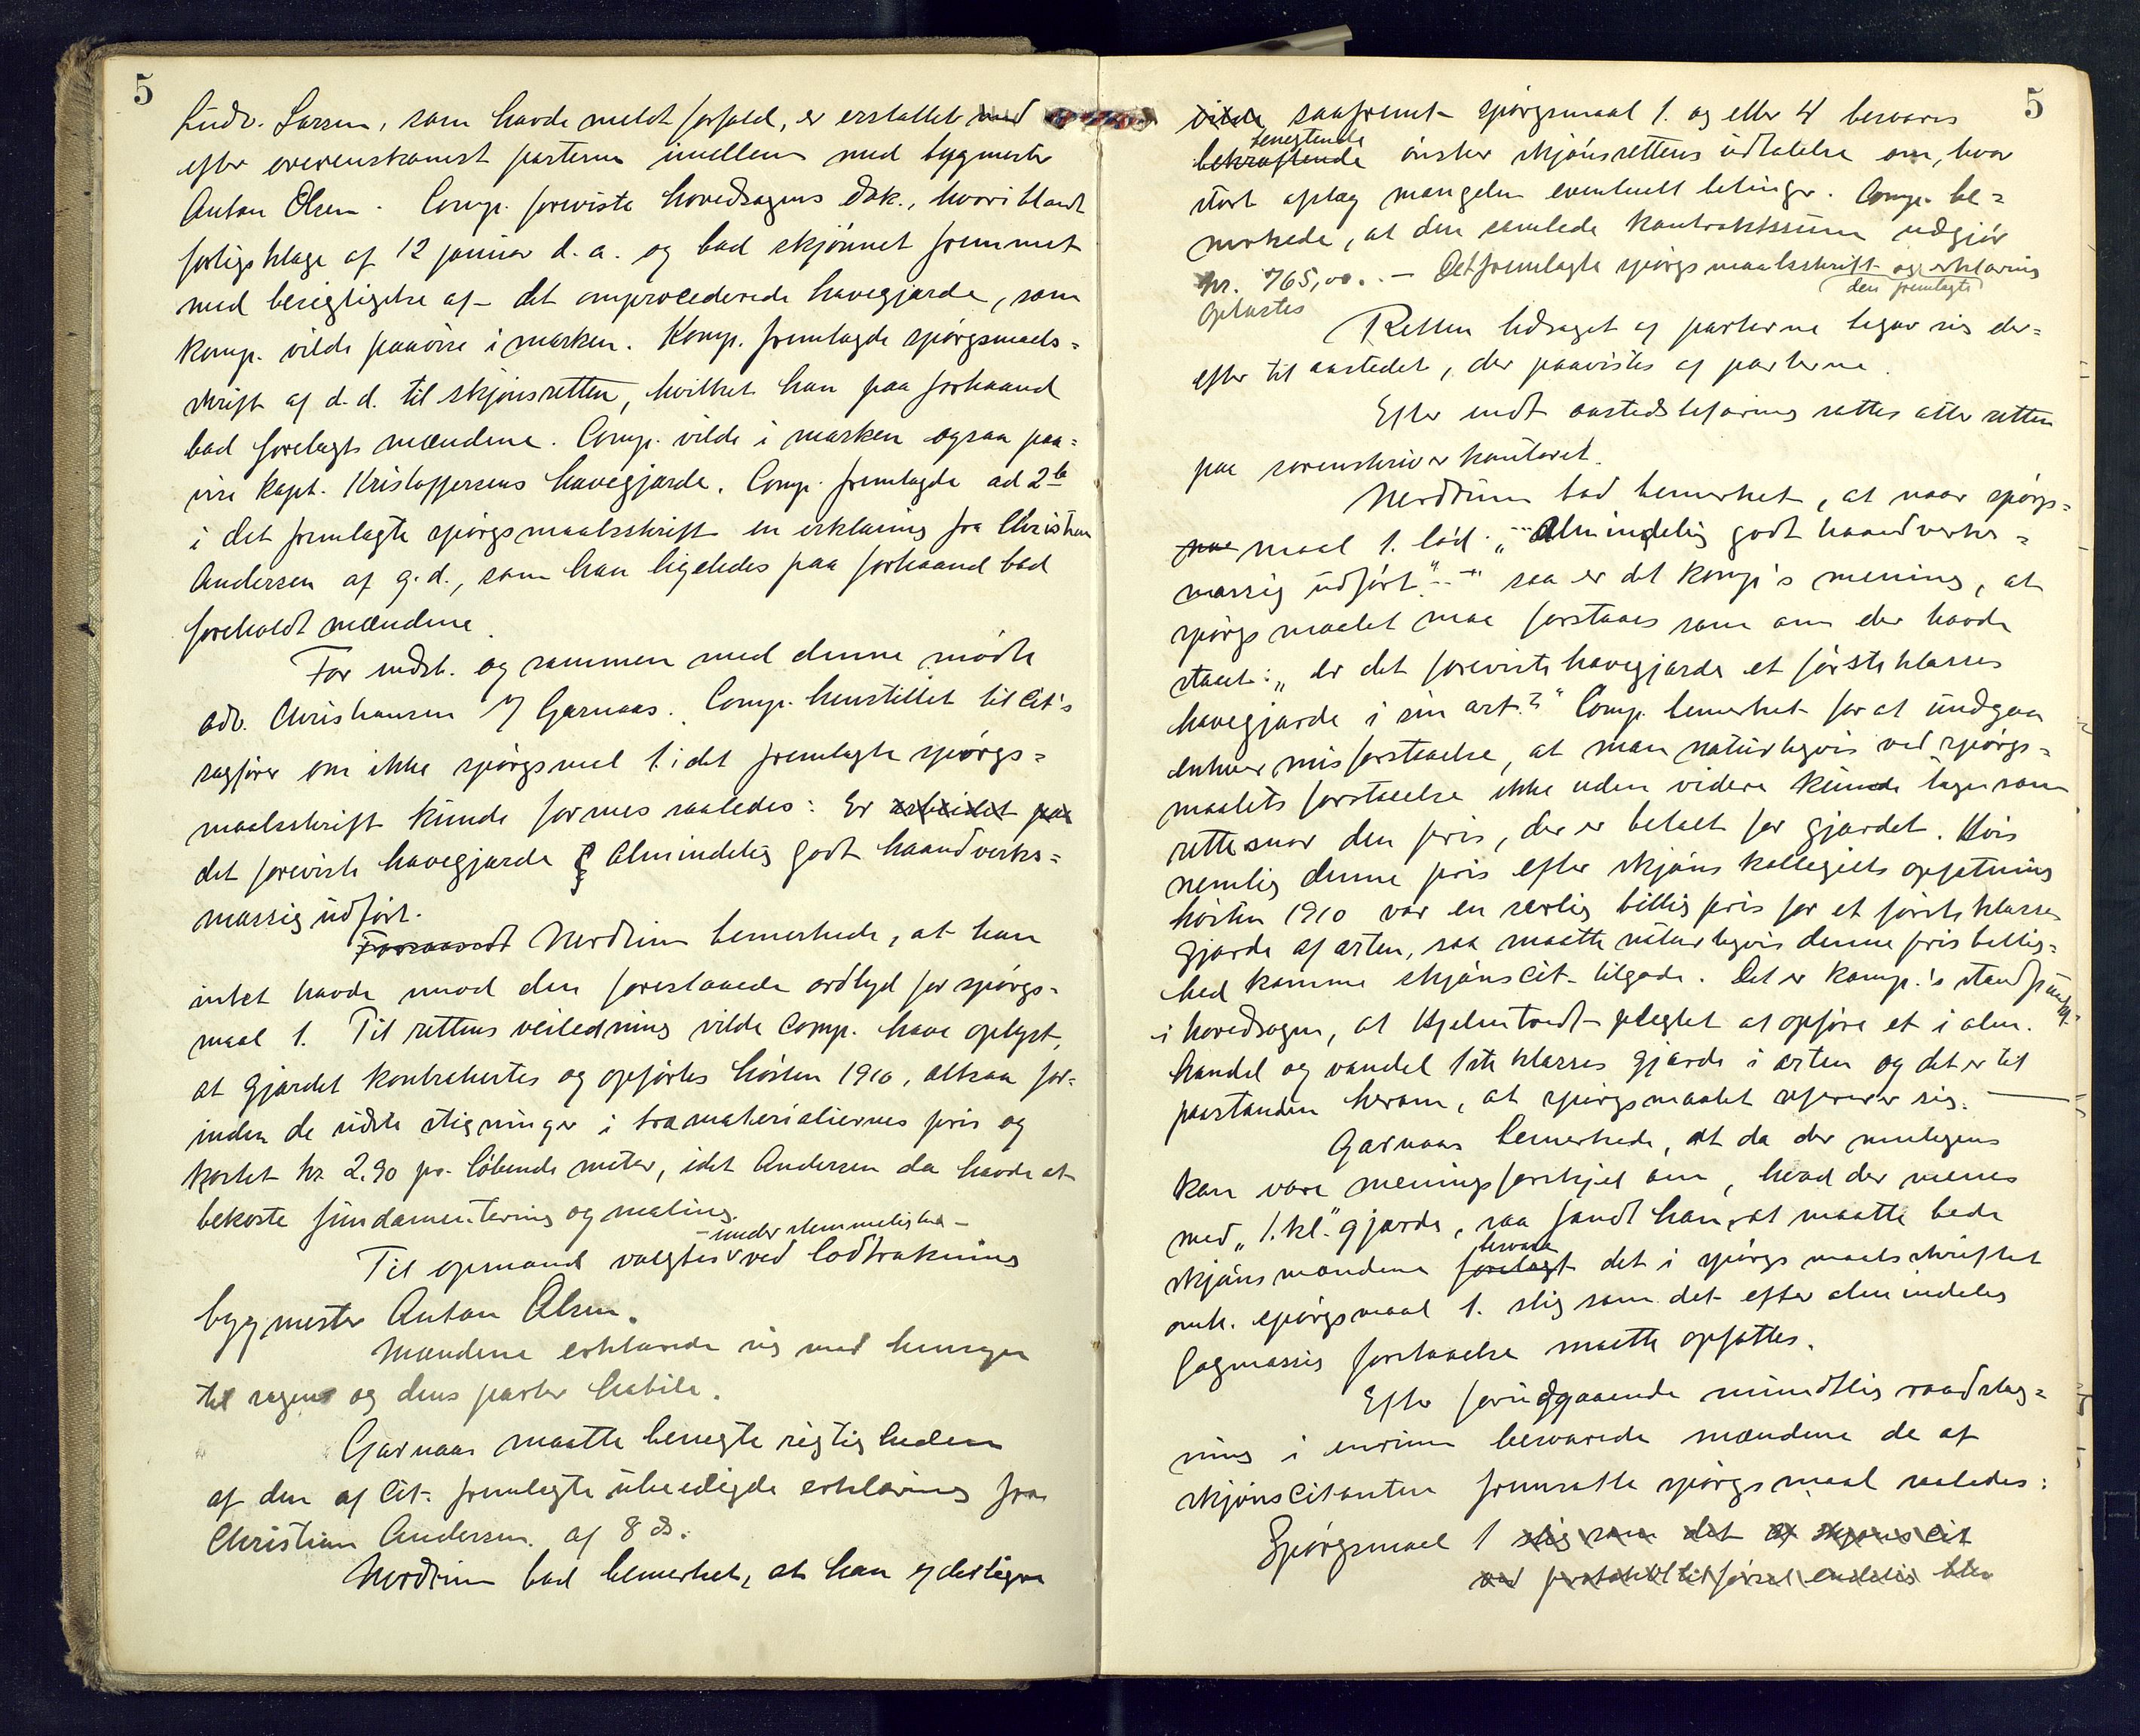 5
Ludv. Larsen, som havde meldt forfald, er erstattet med
efter overenskomst parterne imellem med bygmester
Anton Olsen. Comp. foreviste hovedsagens dok., hvoriblandt
forligsklage af 12 januar d. a. og bad skjønnet fremmet
med besigtigelse af det omprocederede havegjærde, som
Komp. vilde paavise i marken. Komp. fremlagde spørgsmaals=
skrift af d. d. til skjønsretten, hvilket han paa forhaand
bad forelagt mændene. Comp. vilde i marken ogsaa paa=
vise kapt. Kristoffersens havegjærde. Comp. fremlagde ad 2
i det fremlagte spørgsmaalsskrift en erklæring fra Christian
Andersen af g. d., som han ligeledes paa forhaand bad
foreholdt mændene.
For indst. og sammen med denne mødte
adv. Christiansen v/ Garnaas. Comp. henstillet til Cit's
sagfører om ikke spørgsmaal 1 i det fremlagte spørgs=
maalsskrift kunde formes saaledes: Er arbeidet paa
det foreviste havegjærde almindelig godt haandverks=
mæssig udført.
Nerdrum bemerkede, at han
intet havde mod den forestaaede ordlyd for spørgs-
maal 1. Til rettens veiledning vilde Comp. have oplyst,
at gjærdet kontrahertes og opførtes høsten 1910, altsaa for=
inden de sidste stigninger i træmaterialiernes pris og
kostet kr 2,90 pr. løbende meter, idet Andersen da havde at
bekoste fundamentering og maling.
- under stemmelighed -
Til opmand valgtes ved lodtrækning
bygmester Anton Olsen.
Mændene erklærede sig med hensyn
til sagen og dens parter habile.
Garnaas maatte benegte rigtigheden
af den af Cit. fremlagte ubeedigde erklæring fra
Christian Andersen af 8 ds.
Nerdrum bad bemerket, at han yderligere
5
vilde saafremt spørgsmaal 1. og eller 4 besvares
benegtende
bekræftende ønsker skjønsrettens udtalelse om, hvor
stort afslag mangelen eventuelt betinger. Comp. be=
merkede, at den samlede kontraktssum udgjør
kr. 765,00. - Det fremlagte spørgsmaalsskrift og erklæring
den fremlagte
oplæstes
Retten ledsaget af parterne begav sig der=
efter til aastedet, der paavistes af parterne.
Efter endt aastedsbefaring sattes atter retten
paa sorenskriverkontoret.
Nerdrum bad bemerket, at naar spørgs=
maal 1. lød: „... Almindelig godt haandverks=
mæssig udført." saa er det komp's mening, at
spørgsmaalet maa forstaaes som om der havde
staaet: „er det foreviste havegjærde et første klasses
havegjærde i sin art?" Comp. bemerket for at undgaa
enhver misforstaaelse, at man naturligvis ved spørgs=
maalets forstaaelse ikke uden videre kunde tage som
rettesnor den pris, der er betalt for gjærdet. Hvis
nemlig denne pris efter skjønskollegiets opfatning
høsten 1910 var en særlig billig pris for et første klasses
gjærde af arten, saa maatte naturligvis denne prisbillig=
hed komme skjønscit. tilgode. Det er komp.'s standpunkt
i hovedsagen, at Hjelmtvedt pligtet at opføre et i alm.
handel og vandel 1ste klasses gjærde i arten og det er til
paastanden herom, at spørgsmaalet refererer sig.
Garnaas bemerkede, at da der muligens
kan være meningsforskjel om, hvad der menes
med „1. kl." gjærde, saa fandt han at maatte bede
besvare
skjønsmændene forelagt det i spørgsmaalsskriftet
omh. spørgsmaal 1. slig som det efter almindelig
fagmæssig forstaaelse maatte opfattes.
Efter forudgaaende mundtlig raadslag=
ning i enrum besvarede mændene de af
skjønscitanten fremsatte spørgsmaal saaledes:
Spørgsmaal 1 slig som det af skjønscit
ved protokoltilførsel endelig blev